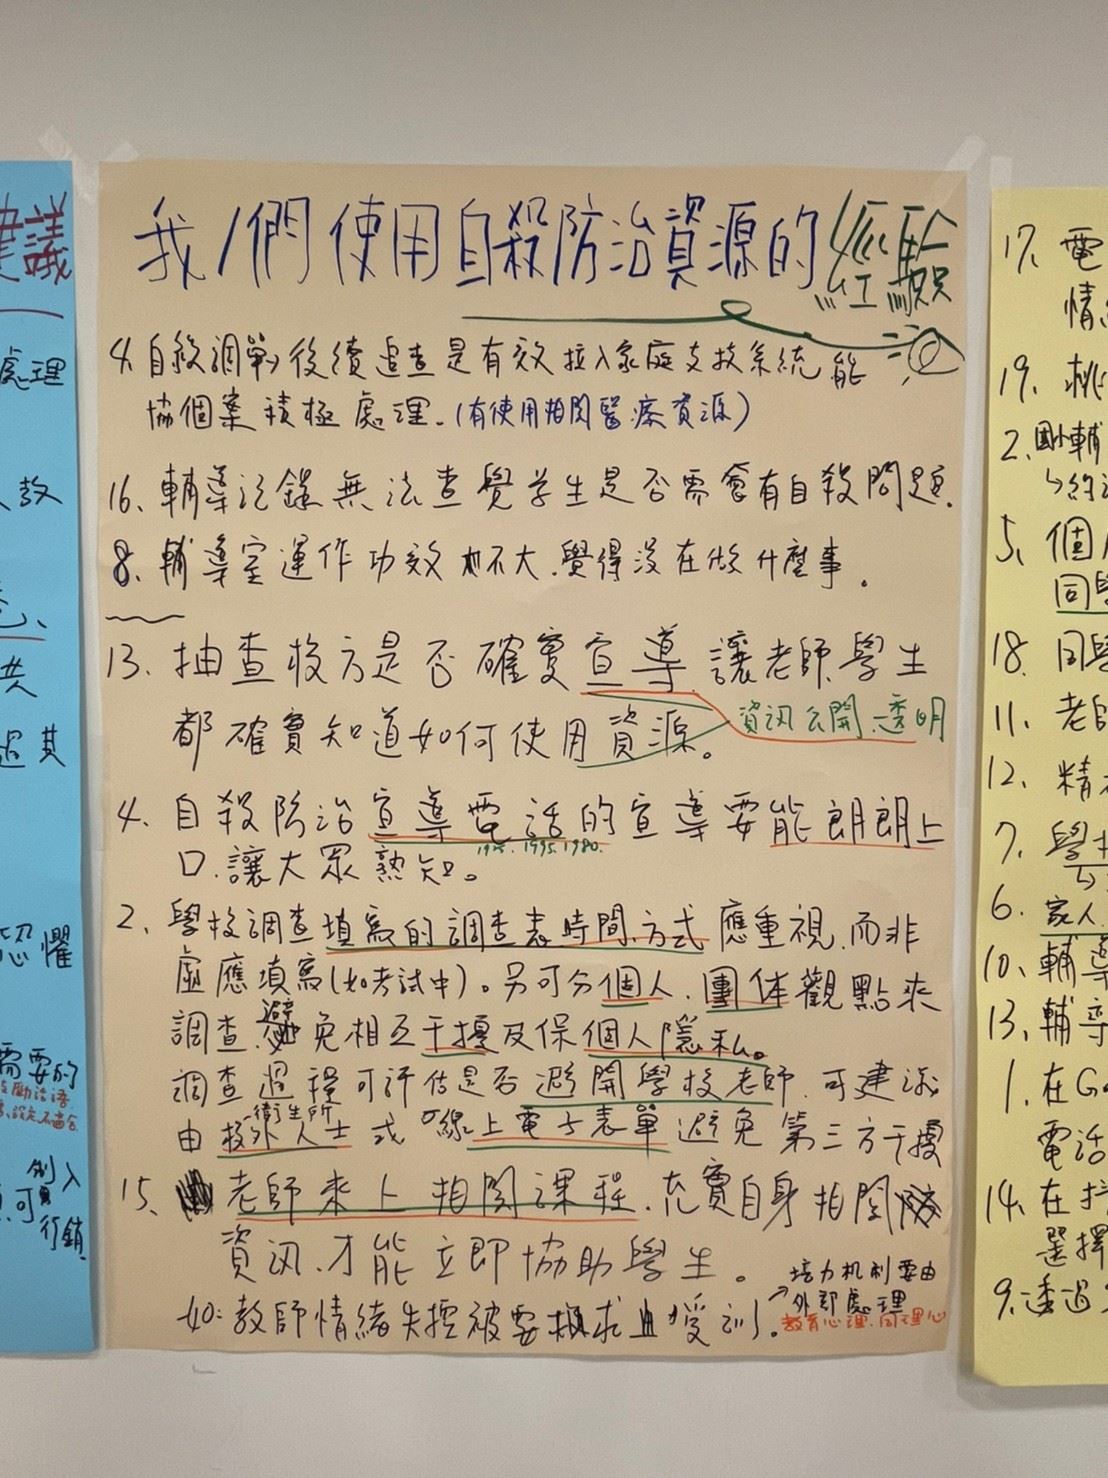 我/們使用自殺防治資源的經驗
4. 自殺調查後續追查是有效拉入家庭支技系統 能
協個案積極處理。(有使用相関醫療資源)
16、輔導記錄無法查覺学生是否需會有自殺問題.
8、輔導室運作功效不大.覺得沒在做什麼事。
13. 抽查校方是否確實宣導讓老師學生
都確實知道如何使用資源。
資訊公開.透明
4、自殺防治宣導電話的宣導要能朗朗上
1925. 1995. 1980.
口.讓大眾熟知。
2、學校調查填寫的調查表時間.方式 應重視.而非
虛應填寫(如考試中)。另可分個人.團体觀點來
調查.避免相互干擾及保個人隱私。
調查過程可評估是否避開學校老師.可建議
由校外人士或線上電子表單避免第三方干擾
衛生所
15、老師來上相関課程.充實自身相関
資訊.才能立即協助學生。
如:教師情緒失控被要求且受訓.
→培力机制要由
外部處理
教育心理.同理心
建議
處理
共
恐懼
需要的
行銷
17、電
19、桃
2、國小輔
5、個
18. 同學
11、老師
12、精
7、學
6、家人
10、輔導
13、輔導
1. 在Go
電話
14、在
選擇
9、透過